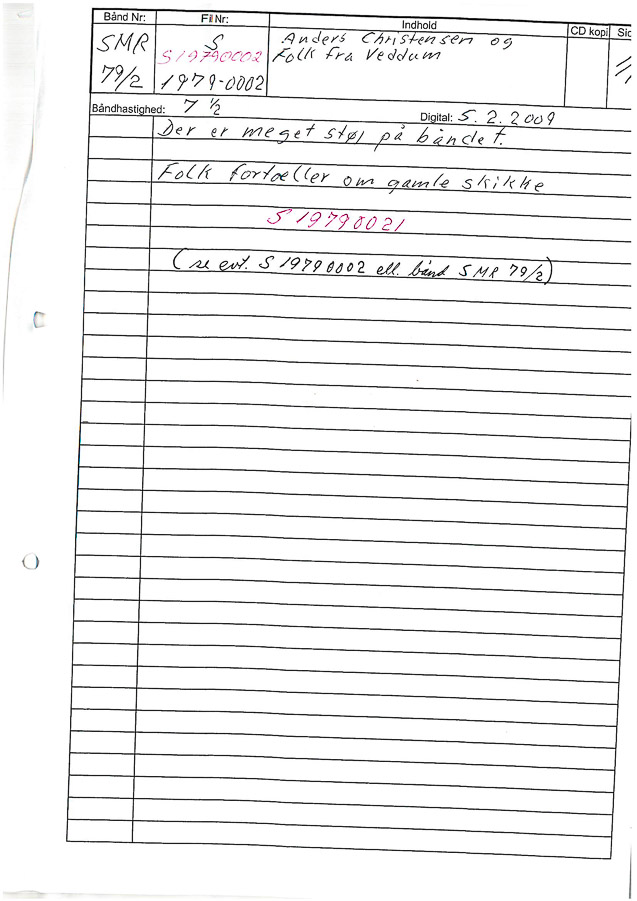 Bånd Nr: Fil Nr: Indhold CD kopi
SMR S Anders Christensen og
S19790002 Folk fra Veddum
79/2 1979-0002
Båndhastighed: 7 ½ Digital: 5.2.2009
Der er meget støj på båndet.
Folk fortæller om gamle skikke
S 19790021
(se evt. S 19790002 ell. bånd SMR 79/2)